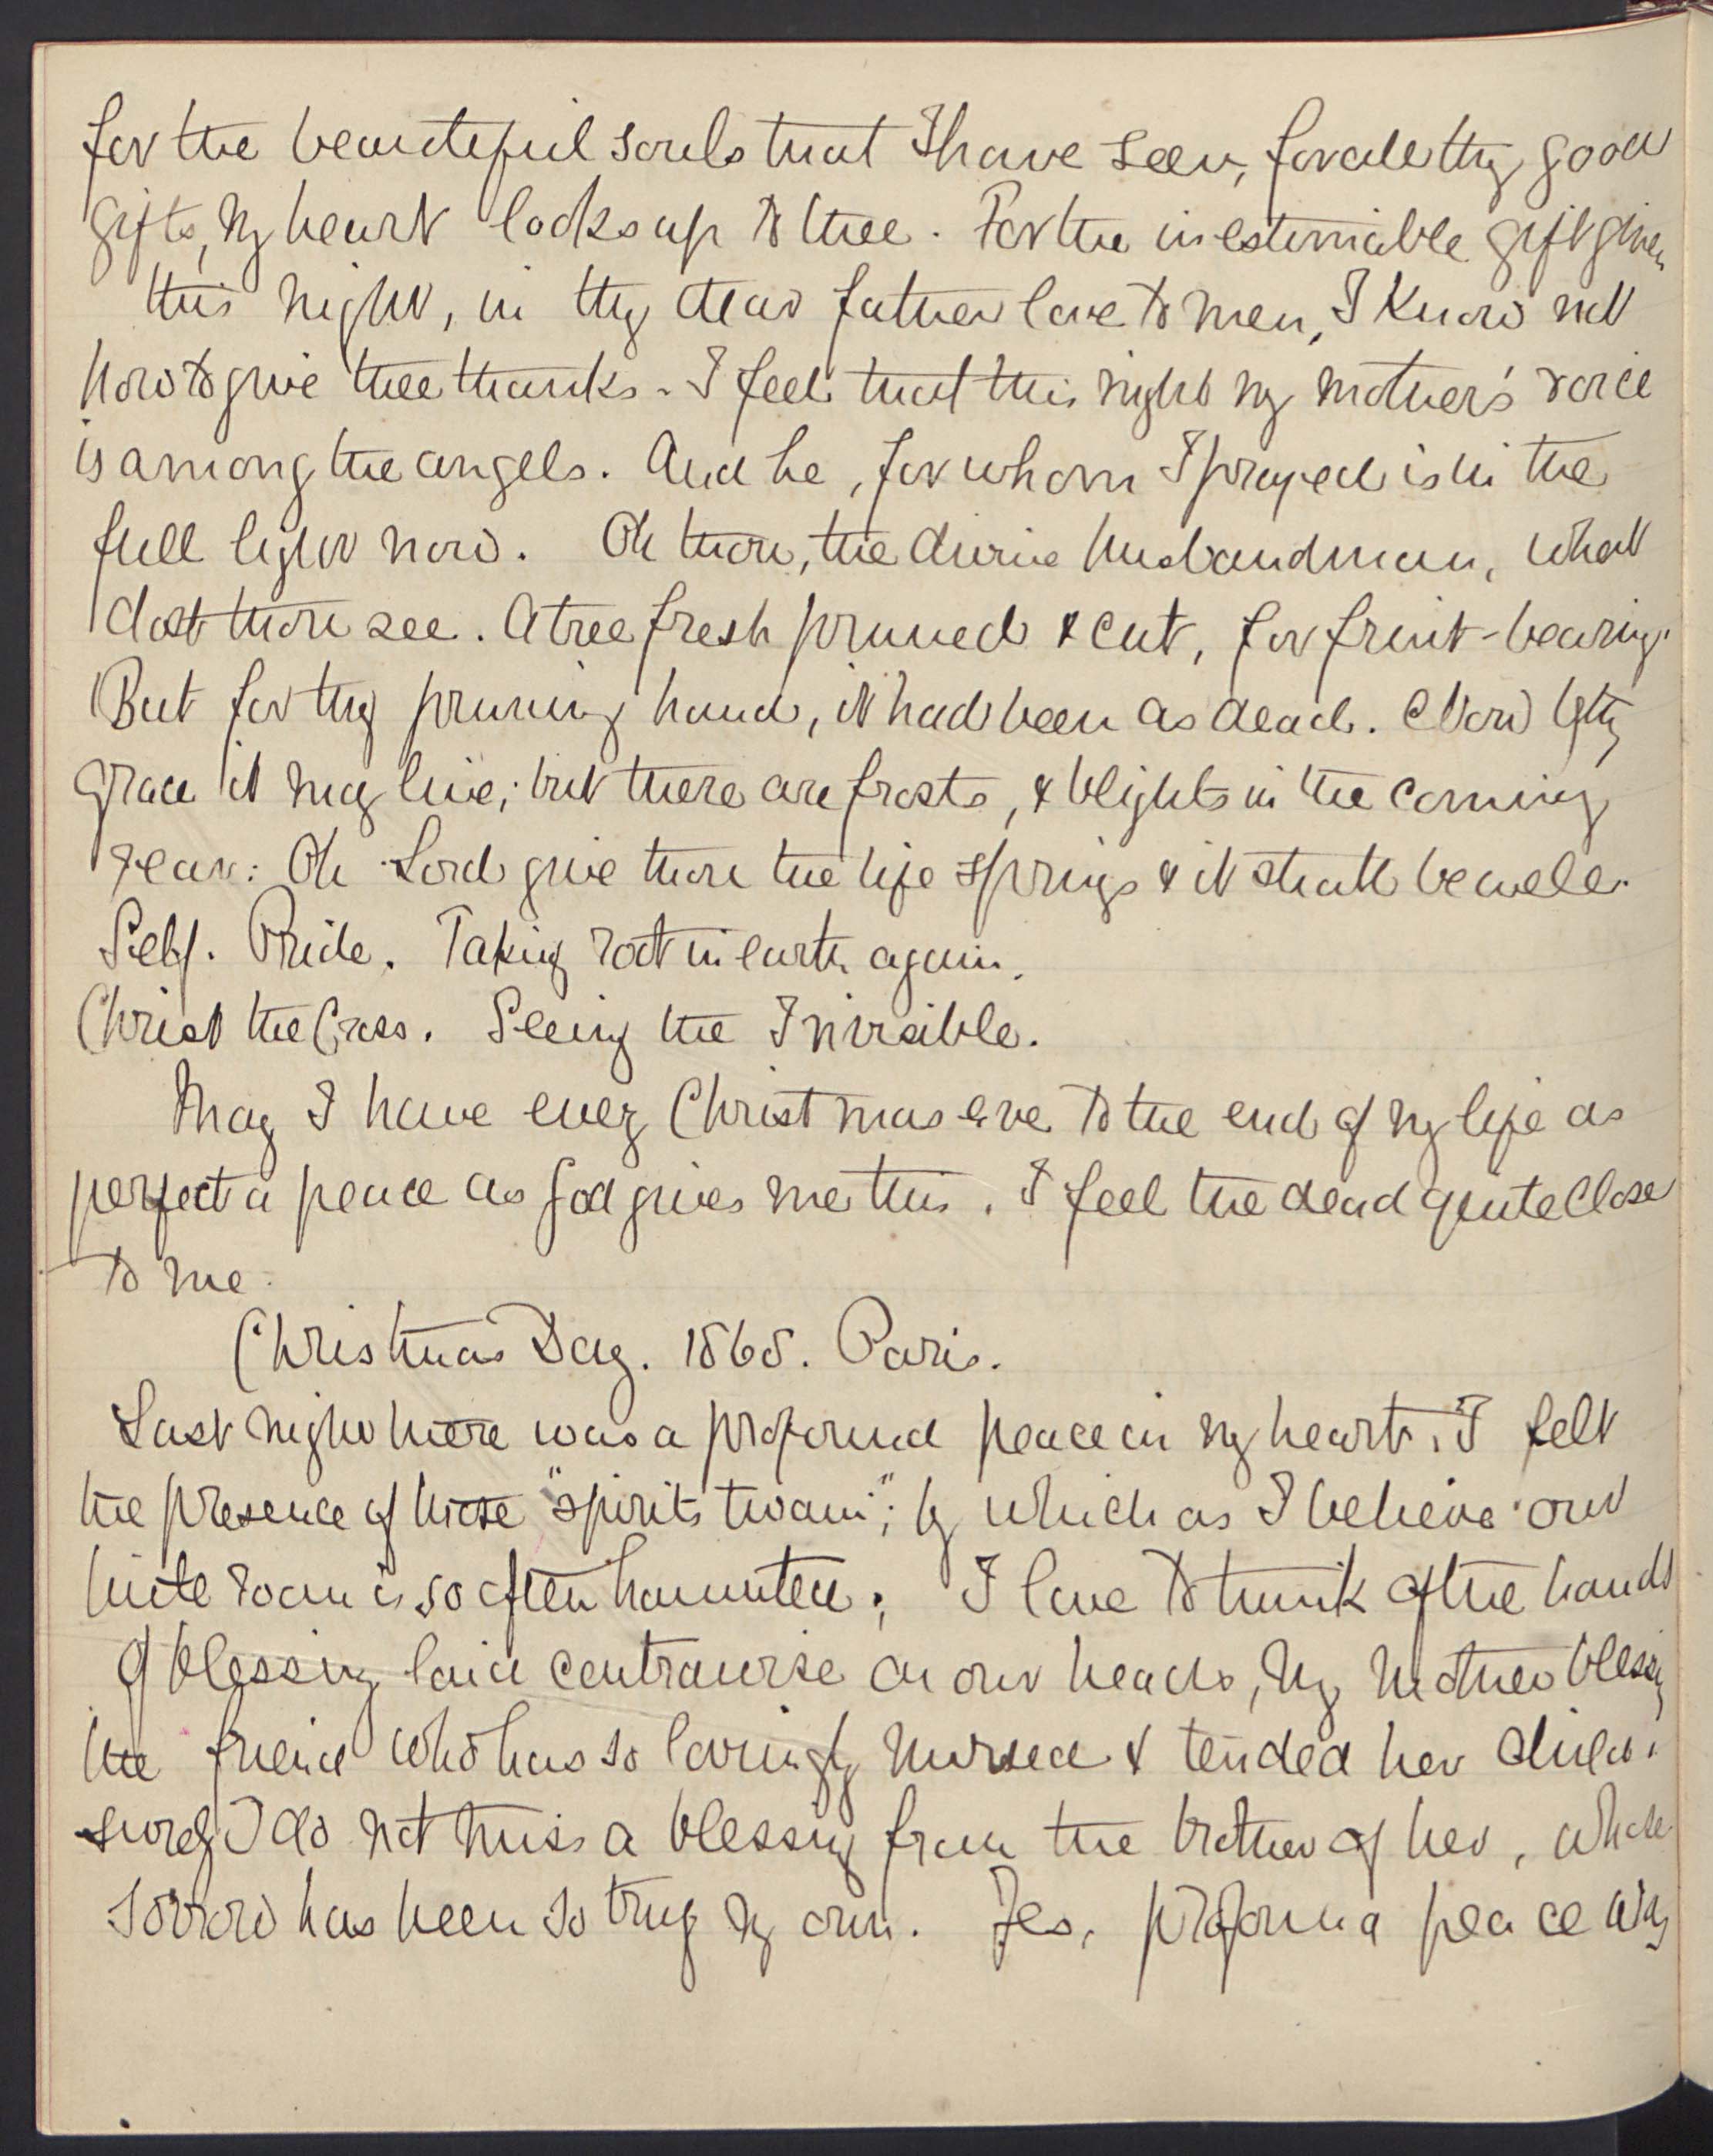 for the beautiful souls that I have seen, for all thy good
gifts, my heart looks up to thee. For the inestimable gift given
this night, in thy dear father love to men, I know not
how to give thee thanks. I feel that this night my mother's voice
is among the angels. And he, for whom I prayed is in the
full light now. Oh thou, the divine husbandman, what
dost thou see. A tree fresh pruned & cut, for fruit-bearing.
But for thy pruning hand, it had been as dead. Now by thy
grace it may live; but there are frosts, & blights in the coming
year: Oh Lord give thou the life springs & it shall be well.
Self. Pride. Taking root in earth again.
Christ the Cross. Seeing the Invisible.
May I have every Christmas eve to the end of my life as
perfect a peace as God gives me this. I feel the dead quite close
to me.
Christmas Day. 1868. Paris.
Last night there was a profound peace in my heart. I felt
the presence of those "spirits twain"; by which as I believe our
little room is so often haunted. I love to think of the hands
of blessing laid contrawise on our heads, my mother blessing
the friend who has so lovingly nursed & tended her child.
surely I do not miss a blessing from the brother of her, whose
sorrow has been so truly my own. Yes, profound peace was